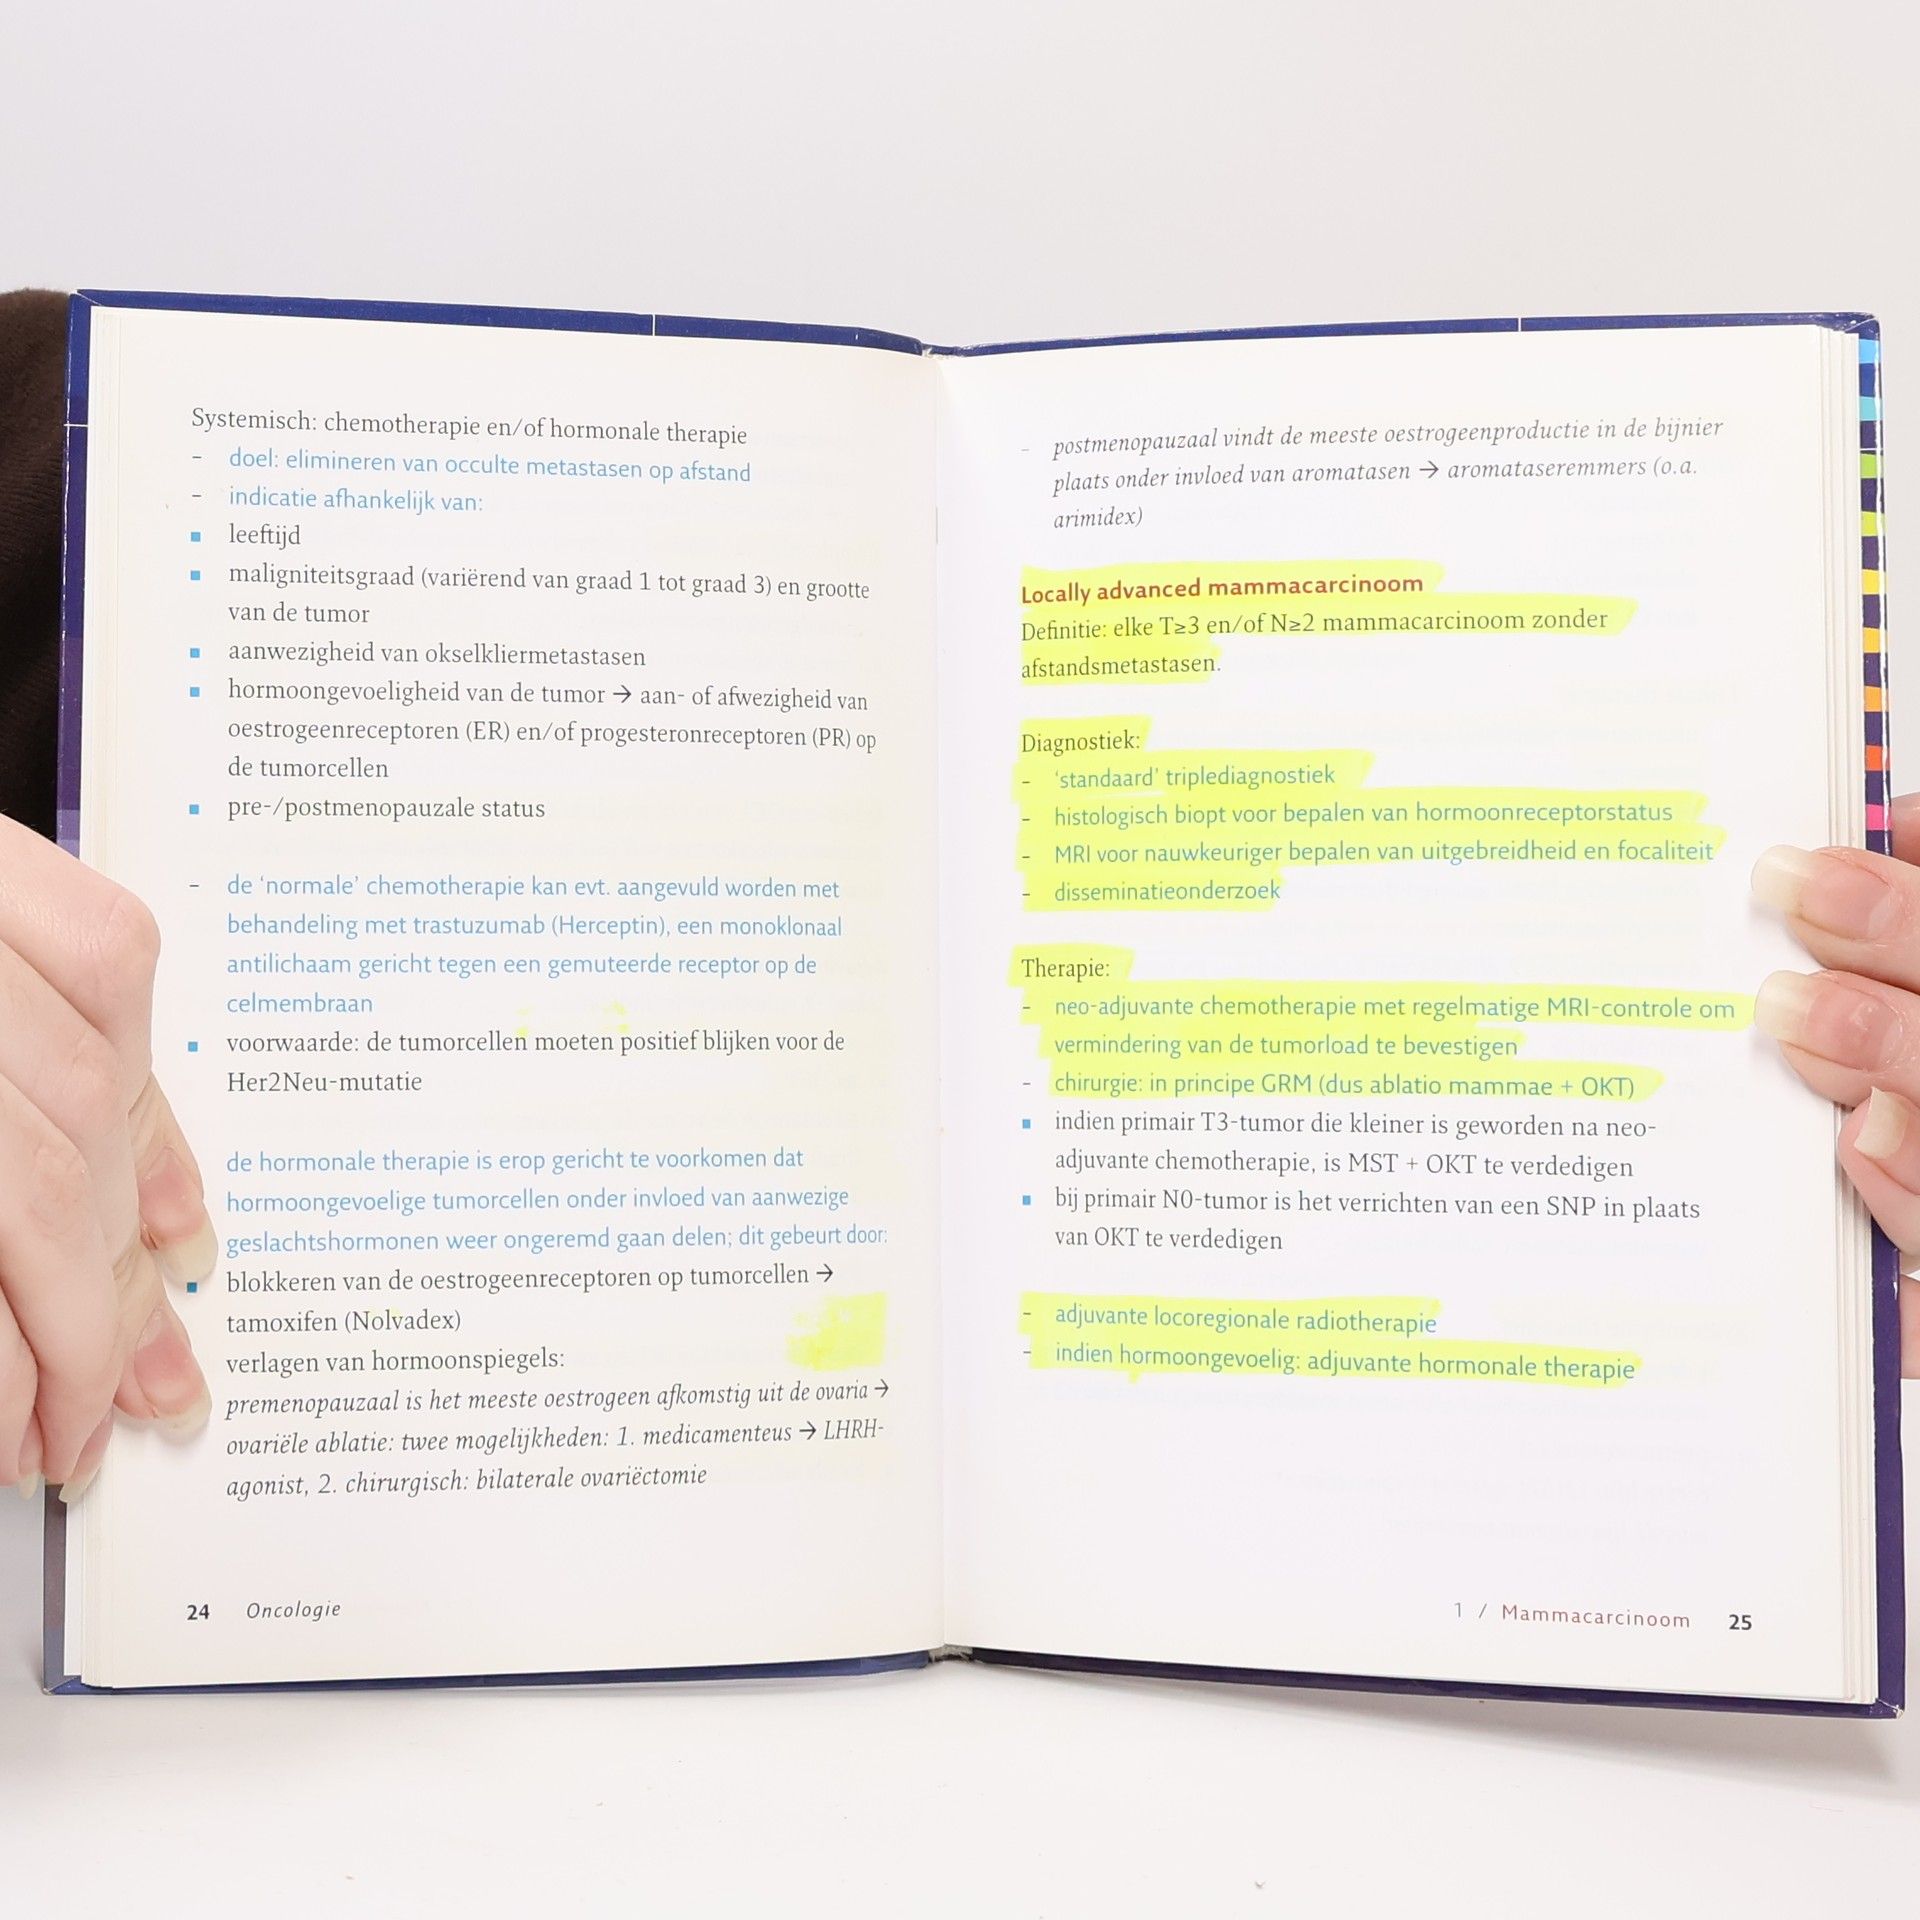 Systemisch: chemotherapie en/of hormonale therapie
– doel: elimineren van occulte metastasen op afstand
– indicatie afhankelijk van:
▪ leeftijd
▪ maligniteitsgraad (variërend van graad 1 tot graad 3) en grootte
van de tumor
▪ aanwezigheid van okselkliermetastasen
▪ hormoongevoeligheid van de tumor → aan- of afwezigheid van
oestrogeenreceptoren (ER) en/of progesteronreceptoren (PR) op
de tumorcellen
▪ pre-/postmenopauzale status
– de ‘normale’ chemotherapie kan evt. aangevuld worden met
behandeling met trastuzumab (Herceptin), een monoklonaal
antilichaam gericht tegen een gemuteerde receptor op de
celmembraan
▪ voorwaarde: de tumorcellen moeten positief blijken voor de
Her2Neu-mutatie
de hormonale therapie is erop gericht te voorkomen dat
hormoongevoelige tumorcellen onder invloed van aanwezige
geslachtshormonen weer ongeremd gaan delen; dit gebeurt door:
▪ blokkeren van de oestrogeenreceptoren op tumorcellen →
tamoxifen (Nolvadex)
verlagen van hormoonspiegels:
premenopauzaal is het meeste oestrogeen afkomstig uit de ovaria →
ovariële ablatie: twee mogelijkheden: 1. medicamenteus → LHRH-
agonist, 2. chirurgisch: bilaterale ovariëctomie
24 Oncologie
– postmenopauzaal vindt de meeste oestrogeenproductie in de bijnier
plaats onder invloed van aromatasen → aromataseremmers (o.a.
arimidex)
Locally advanced mammacarcinoom
Definitie: elke T≥3 en/of N≥2 mammacarcinoom zonder
afstandsmetastasen.
Diagnostiek:
– ‘standaard’ triplediagnostiek
– histologisch biopt voor bepalen van hormoonreceptorstatus
– MRI voor nauwkeuriger bepalen van uitgebreidheid en focaliteit
– disseminatieonderzoek
Therapie:
– neo-adjuvante chemotherapie met regelmatige MRI-controle om
vermindering van de tumorload te bevestigen
– chirurgie: in principe GRM (dus ablatio mammae + OKT)
▪ indien primair T3-tumor die kleiner is geworden na neo-
adjuvante chemotherapie, is MST + OKT te verdedigen
▪ bij primair N0-tumor is het verrichten van een SNP in plaats
van OKT te verdedigen
– adjuvante locoregionale radiotherapie
– indien hormoongevoelig: adjuvante hormonale therapie
1 / Mammacarcinoom 25